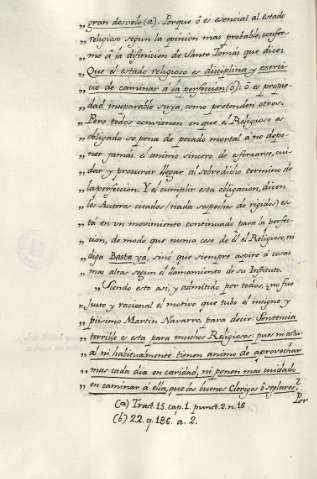 „ gran desvelo (a). Porque ó es esencial al estado
„ religioso segun la opinion mas probable, confor-
„ mo á la difinicion de Santo Tomás, que dice:
„ Que el estado religioso es disciplina y exerci-
„ cio de caminar á la perfeccion (b); ó es propie-
„ dad inseparable suya, como pretenden otros.
„ Pero todos convienen en que el Religioso es
„ obligado so pena de pecado mortal á no depo-
„ ner jamás el animo sincero de esforzarse, cui-
„ dar y procurar llegar al sobredicho termino de
„ la perfeccion. Y el cumplir esta obligacion, dicen
„ los Autores citados (nada sospechosos de rigidos) es-
„ tá en un movimiento continuado para la perfec-
„ cion, de modo que nunca cese de él el Religioso, ni
„ diga Basta ya, sinó que siempre aspire á cosas
„ mas altas segun el llamamiento de su Instituto.
„ Siendo esto asi, y admitido por todos, ¿no fue
„ justo y racional el motivo que tubo el insigne y
„ piisimo Martin Navarro, para decir: Sentencia
„ terrible es esta para muchos Religiosos; pues ni actu-
„ al ni habitualmente tienen animo de aprovechar
„ mas cada dia en caridad, ni ponen mas cuidado
„ en caminar á ella, que los buenos Clerigos ó seglares?
Por
(a) Tract. 15. cap. 1. punct. 2. n. 16
(b) 22. q. 186. a. 2.